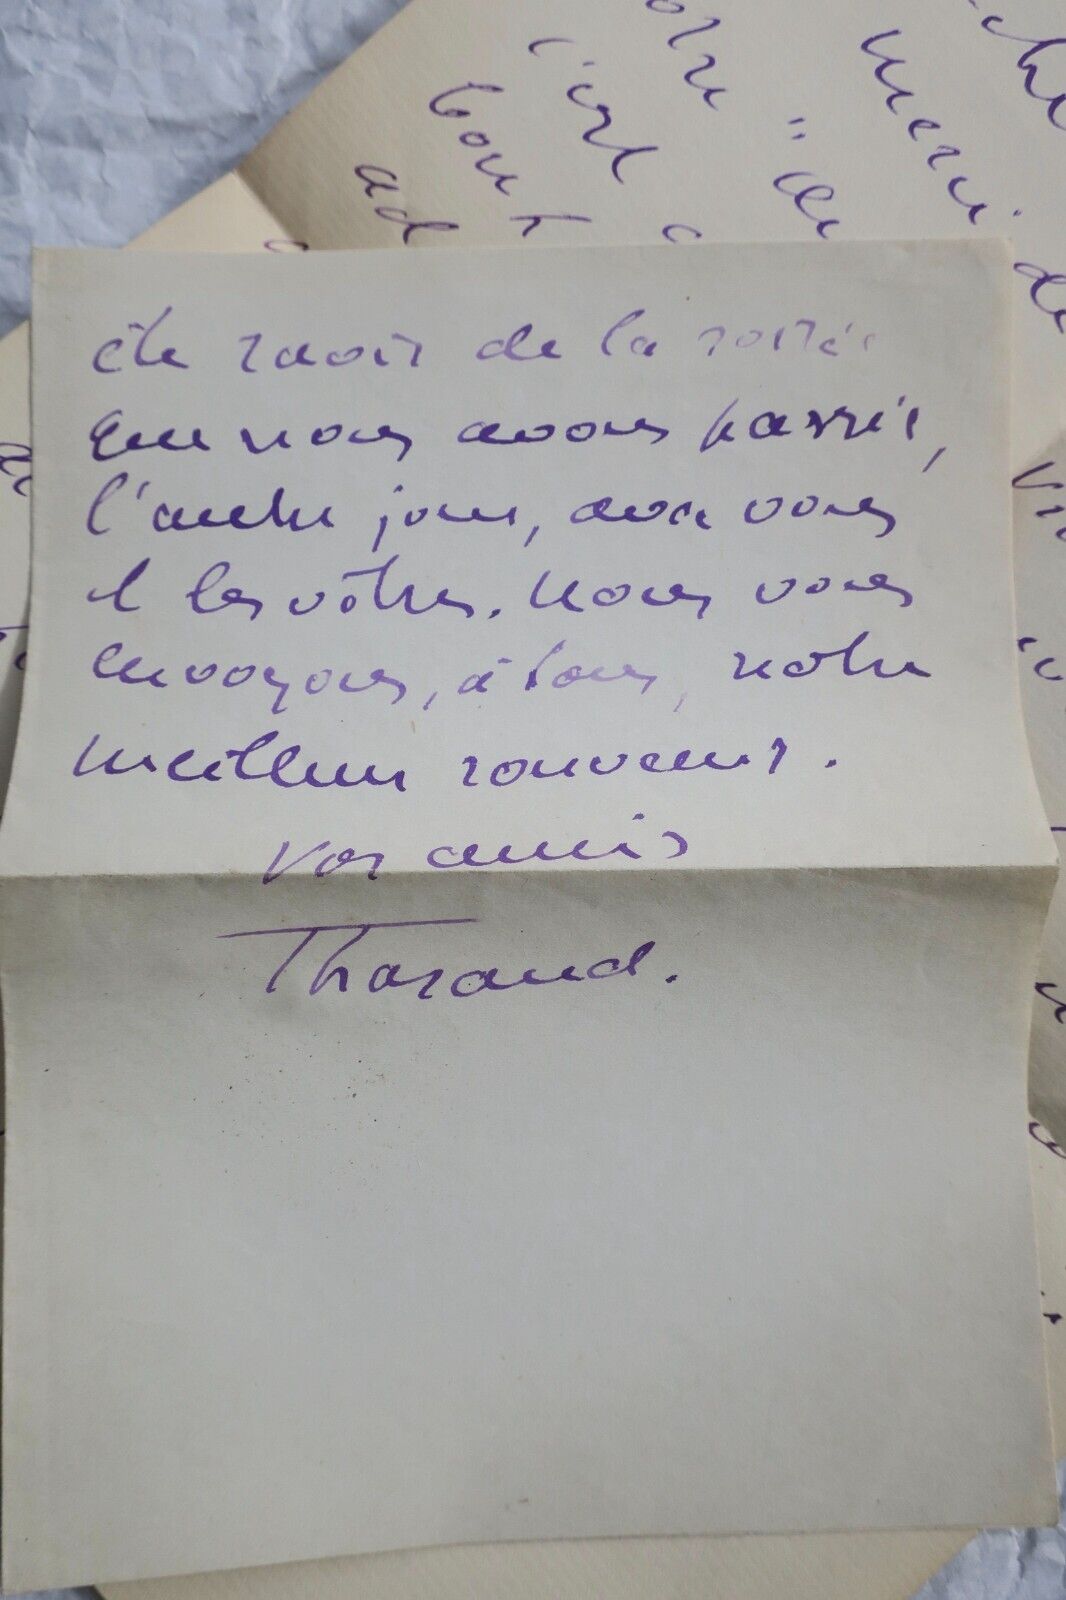 merci de
c'est
bout
été ravis de la soirée
que nous avons passée,
l'autre jour, avec vous
et les vôtres. Nous vous
envoyons, à tous, notre
meilleur souvenir.
Vos amis
Tharaud.